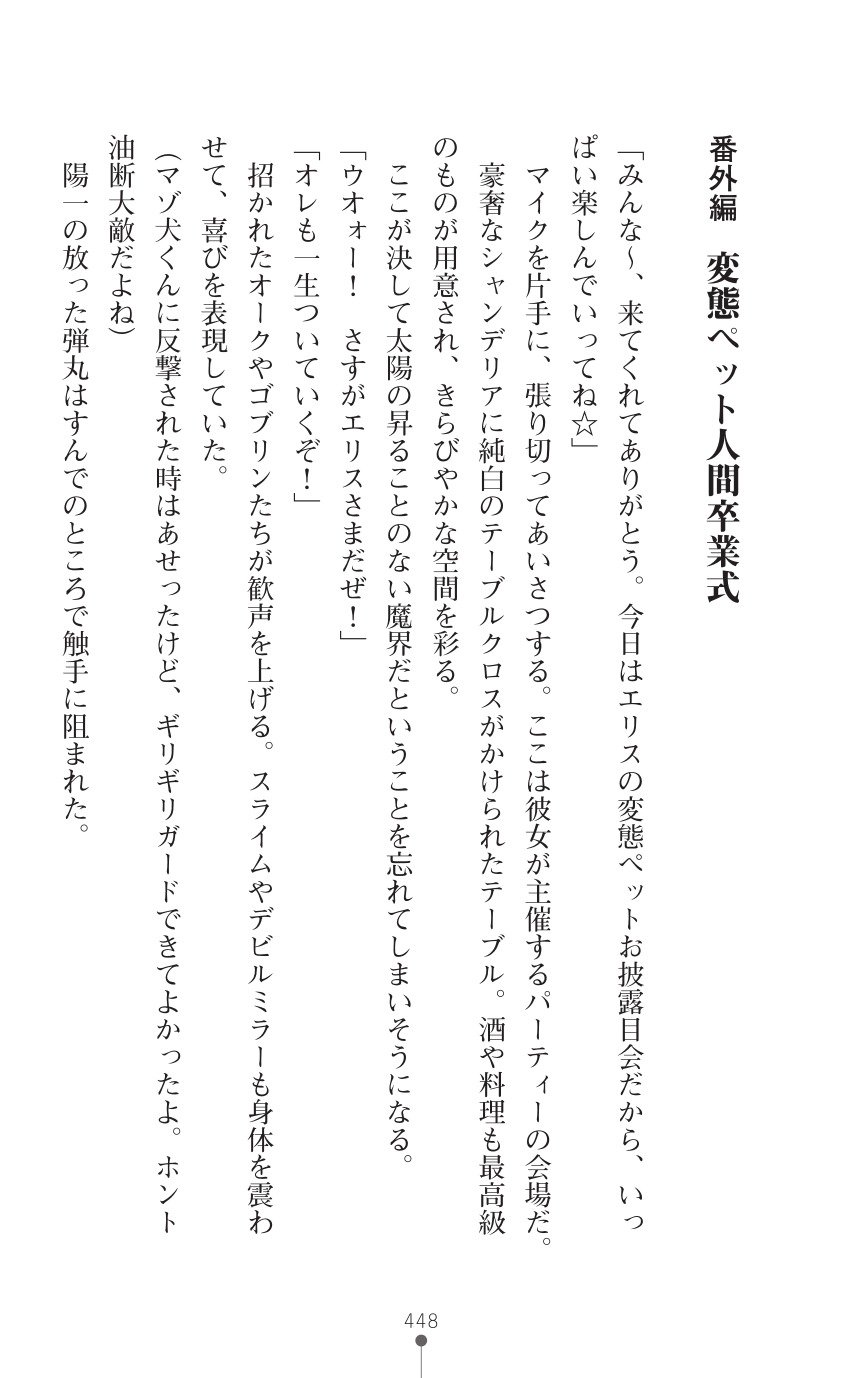 番外編　変態ペット人間卒業式
「みんな～、来てくれてありがとう。今日はエリスの変態ペットお披露目会だから、いっ
ぱい楽しんでいってね☆」
　マイクを片手に、張り切ってあいさつする。ここは彼女が主催するパーティーの会場だ。
　豪奢なシャンデリアに純白のテーブルクロスがかけられたテーブル。酒や料理も最高級
のものが用意され、きらびやかな空間を彩る。
　ここが決して太陽の昇ることのない魔界だということを忘れてしまいそうになる。
「ウオォー！　さすがエリスさまだぜ！」
「オレも一生ついていくぞ！」
　招かれたオークやゴブリンたちが歓声を上げる。スライムやデビルミラーも身体を震わ
せて、喜びを表現していた。
（マゾ犬くんに反撃された時はあせったけど、ギリギリガードできてよかったよ。ホント
油断大敵だよね）
　陽一の放った弾丸はすんでのところで触手に阻まれた。
448